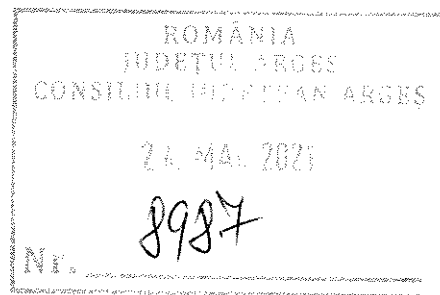 ROMÂNIA
JUDEŢUL ARGEŞ
CONSILIUL JUDEŢEAN ARGEŞ
2021
8987
Nr.